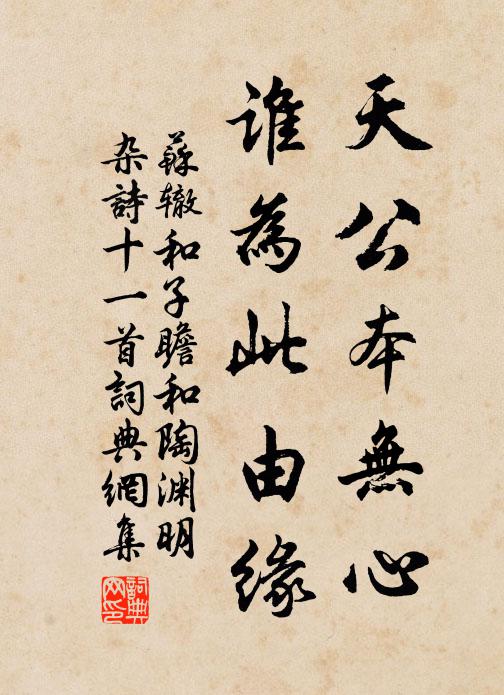 天公本無心
誰為此由緣
蘇辙和子瞻和陶渊明
杂詩十一首詞典網集
詞典網印